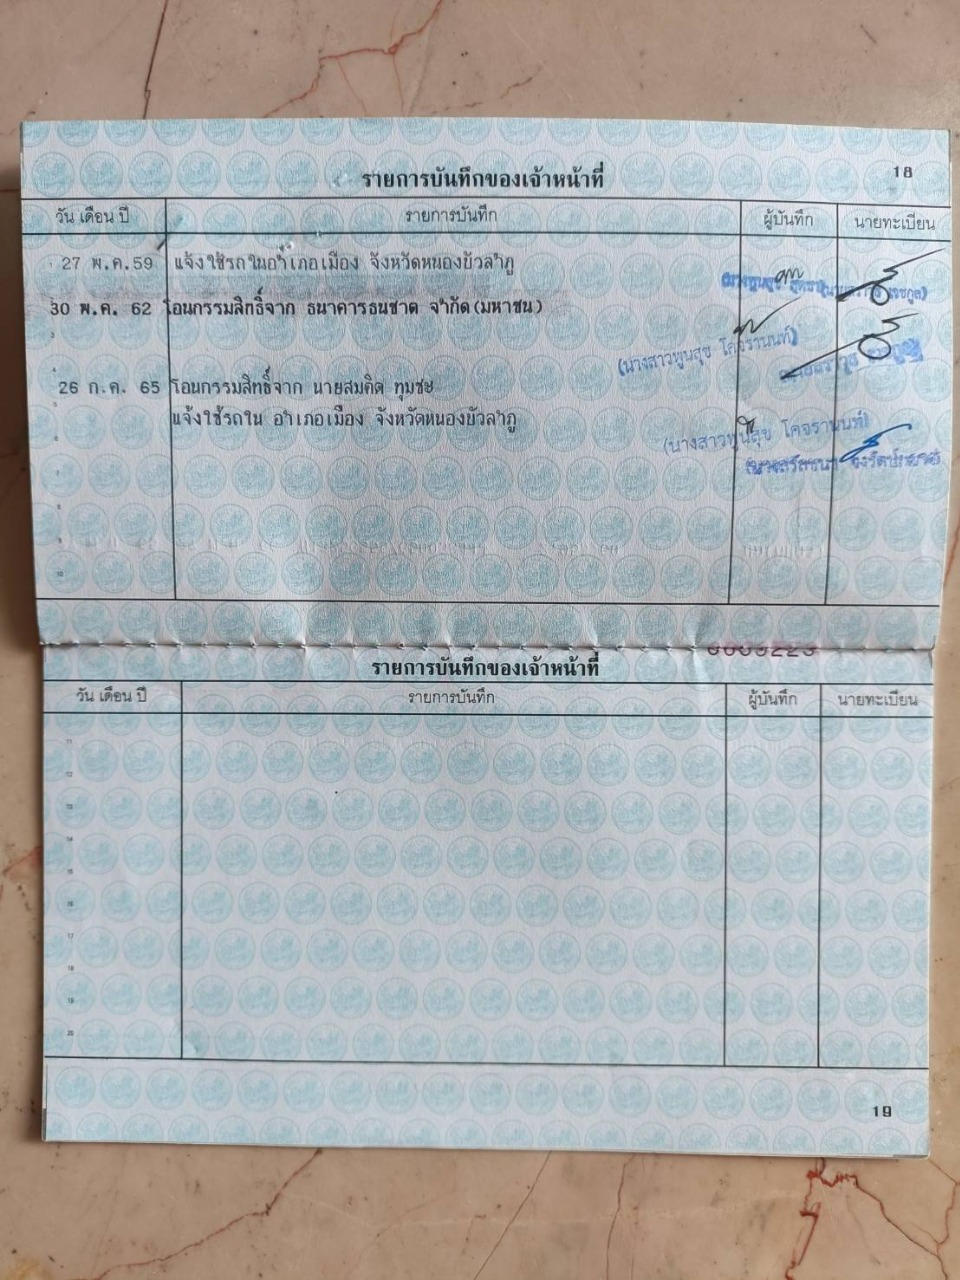 18
รายการบันทึกของเจ้าหน้าที่
วัน เดือน ปี รายการบันทึก ผู้บันทึก นายทะเบียน
27 พ.ค.59 แจ้งใช้รถในอำเภอเมือง จังหวัดหนองบัวลำภู
30 พ.ค. 62 โอนกรรมสิทธิ์จาก ธนาคารธนชาต จำกัด(มหาชน)
(นางสาวพูนสุข โคจรานนท์)
26 ก.ค. 65 โอนกรรมสิทธิ์จาก นายสมคิด ทุมชะ
แจ้งใช้รถใน อำเภอเมือง จังหวัดหนองบัวลำภู
(นางสาวพูนสุข โคจรานนท์)
รายการบันทึกของเจ้าหน้าที่
วัน เดือน ปี รายการบันทึก ผู้บันทึก นายทะเบียน
11
12
13
14
15
16
17
18
19
20
19